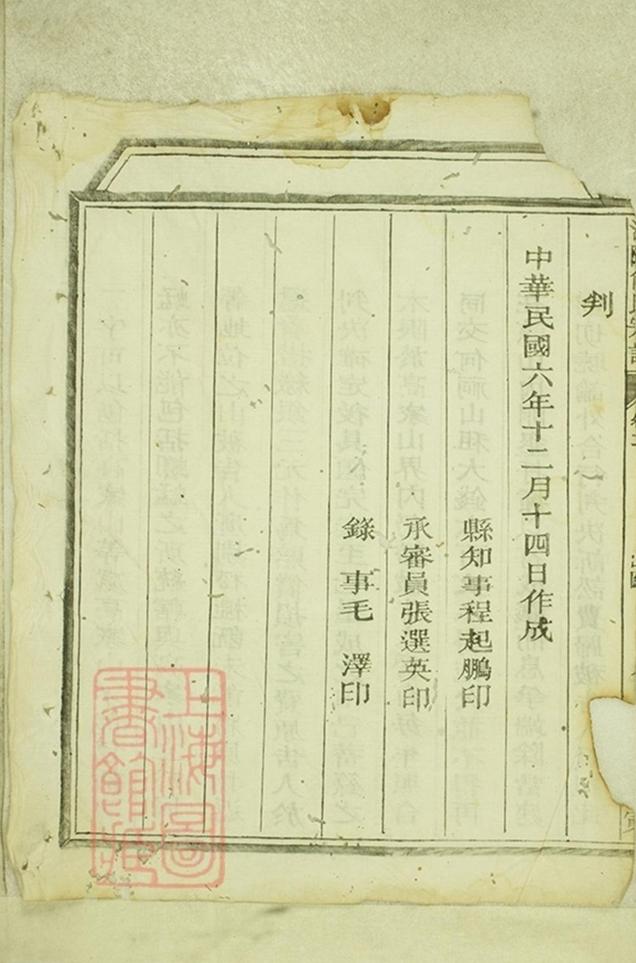 判
中華民國六年十二月十四日作成
縣知事程起鵬印
承審員張選英印
錄事毛澤印
上海圖書館藏